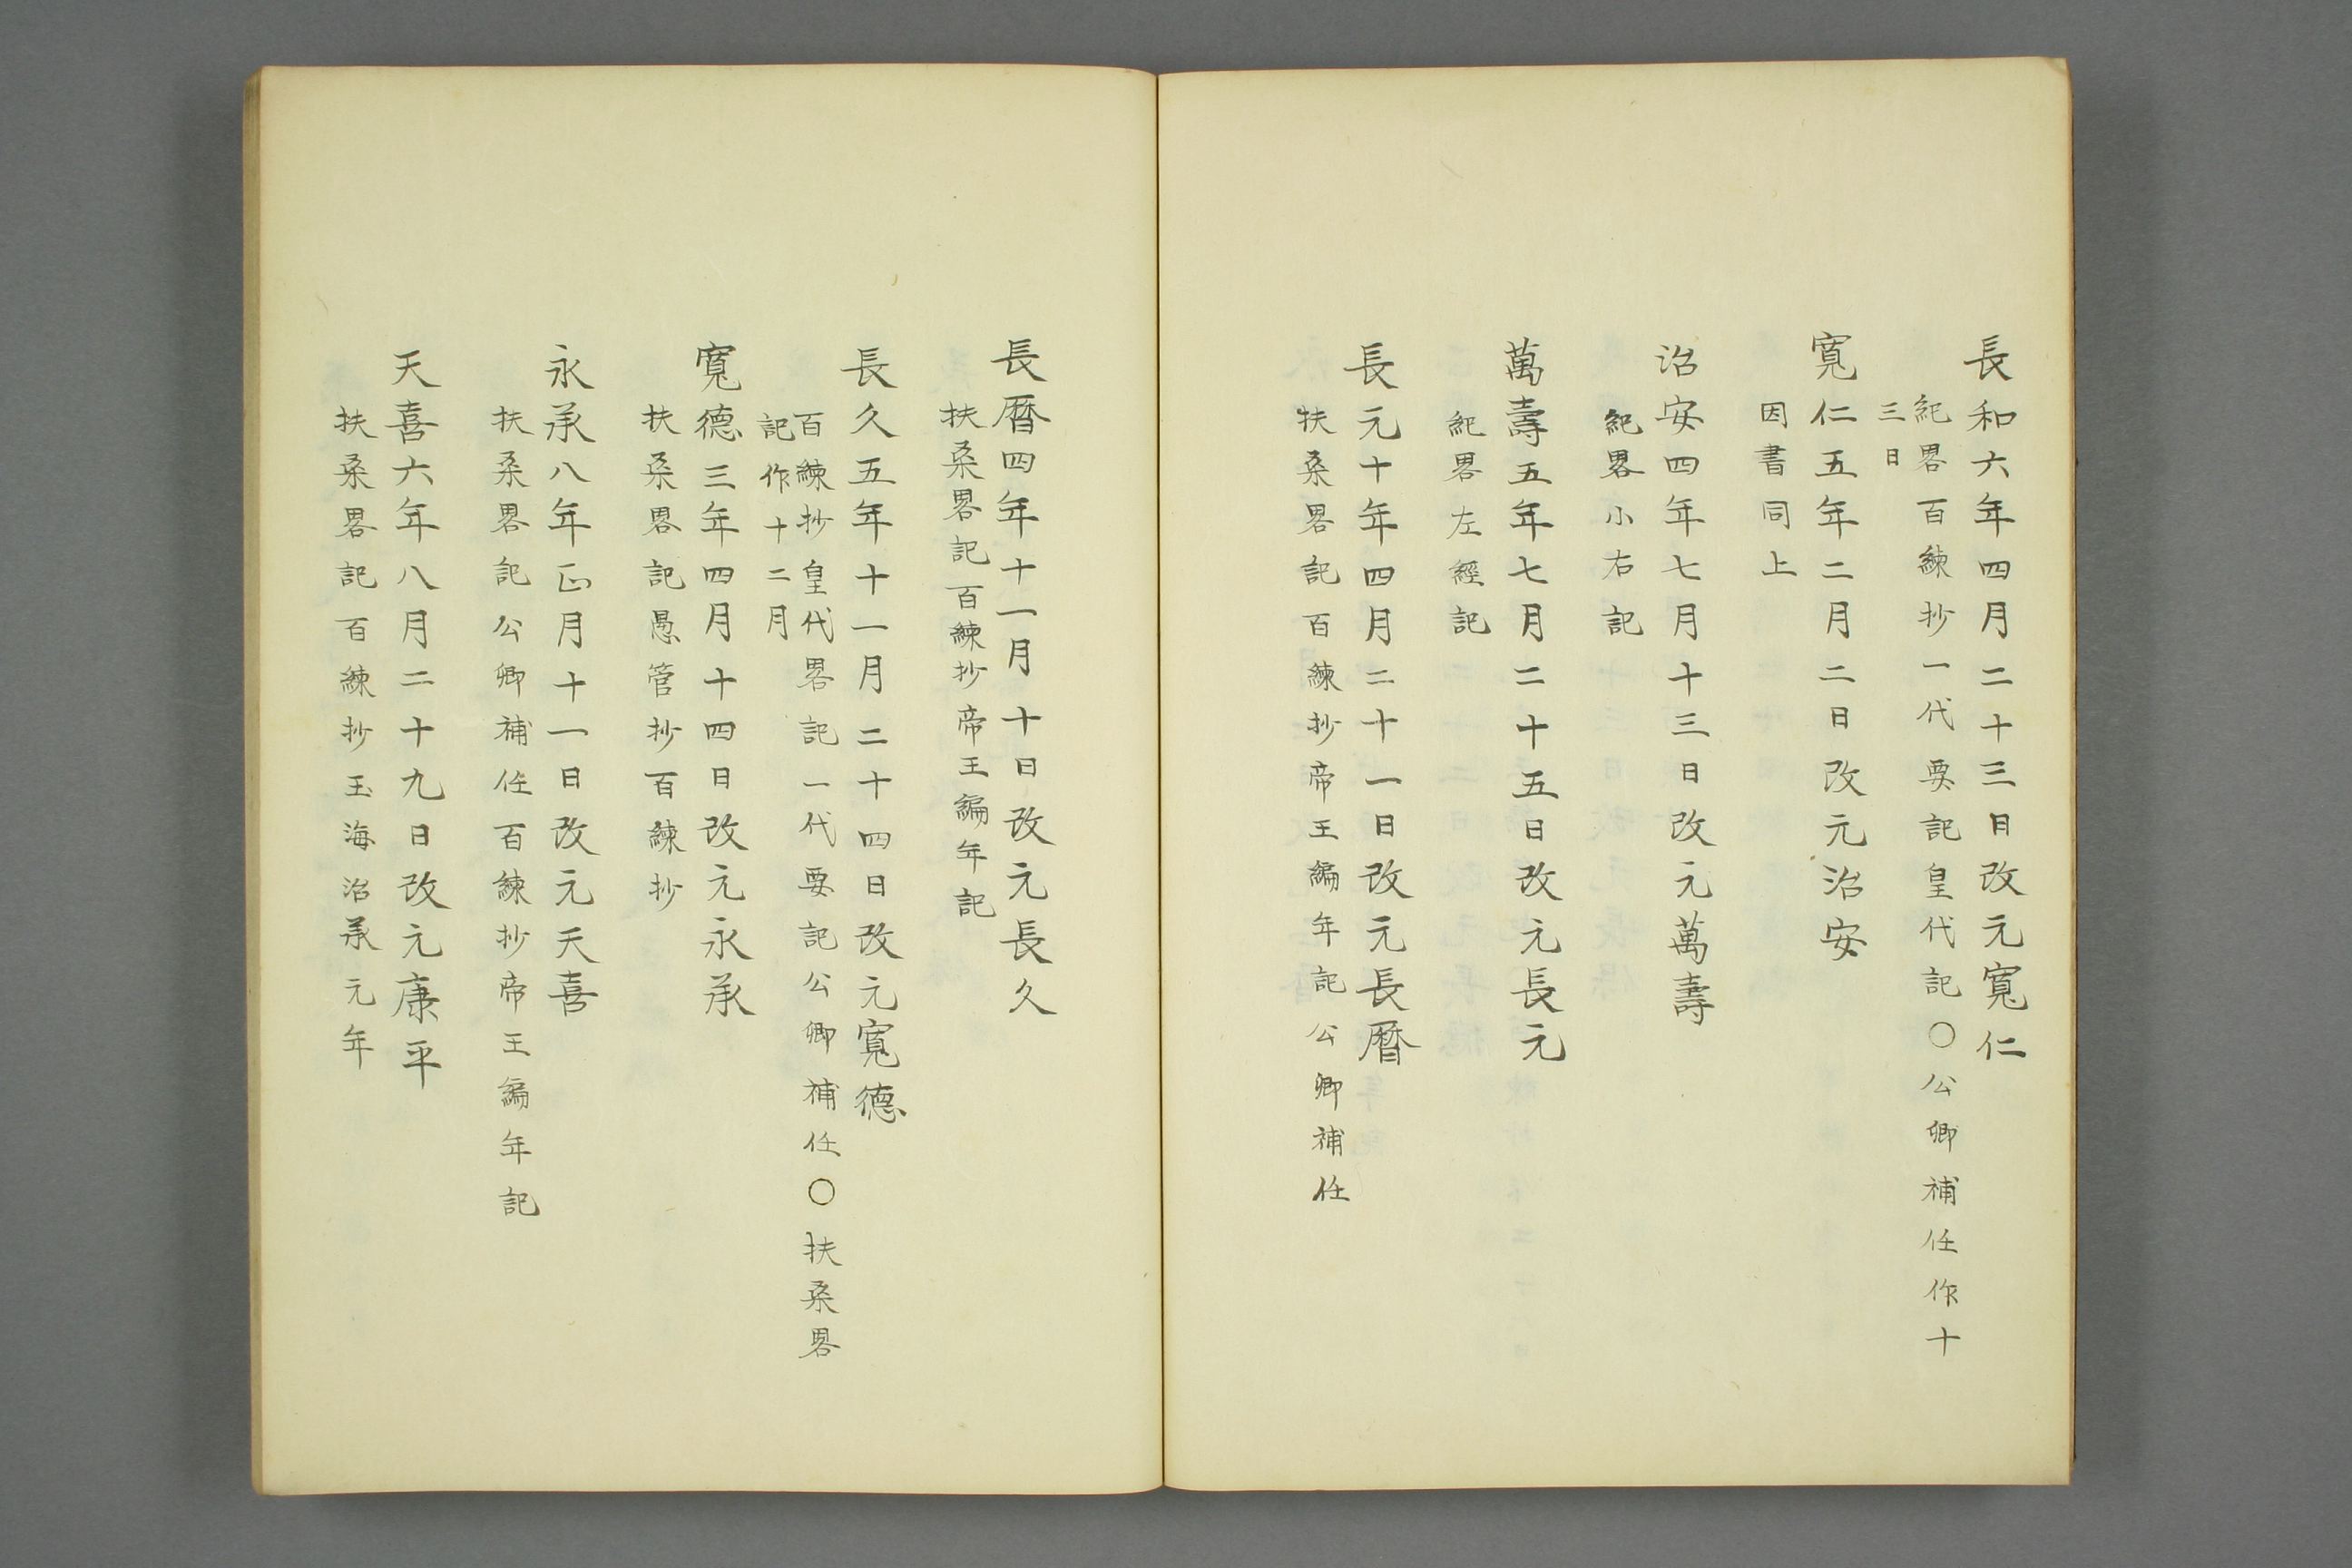 長和六年四月二十三日改元寬仁
紀畧百練抄一代要記皇代記〇公卿補任作十
三日
寬仁五年二月二日改元治安
因書同上
治安四年七月十三日改元萬壽
紀畧小右記
萬壽五年七月二十五日改元長元
紀畧左經記
長元十年四月二十一日改元長曆
扶桒畧記百練抄帝王編年記公卿補任
長曆四年十一月十日改元長久
扶桒畧記百練抄帝王編年記
長久五年十一月二十四日改元寬德
百練抄皇代畧記一代要記公卿補任〇扶桒畧
記作十二月
寬德三年四月十四日改元永承
扶桒畧記愚管抄百練抄
永承八年正月十一日改元天喜
扶桒畧記公卿補任百練抄帝王編年記
天喜六年八月二十九日改元康平
扶桒畧記百練抄玉海治承元年